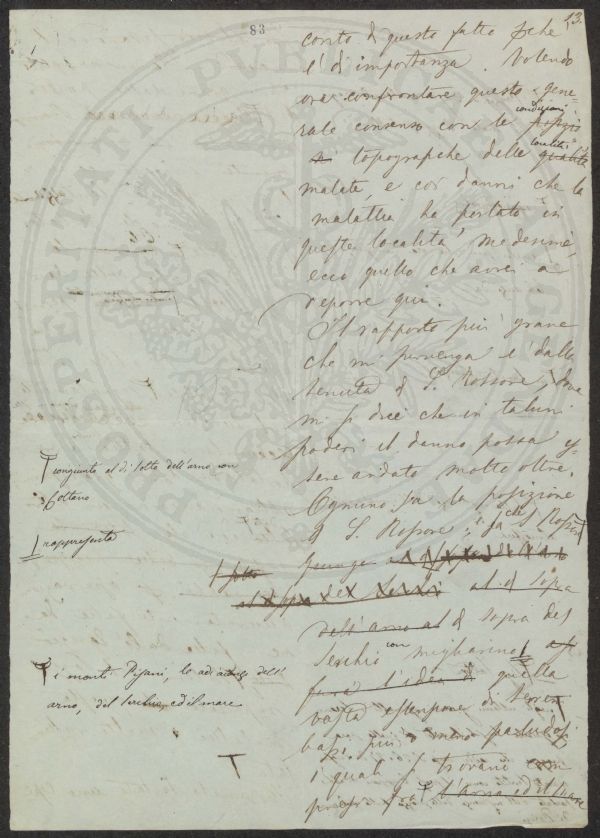 83
13.
conto di questo fatto pche
l'è di importanza. Volendo
ora confrontare questo gene-
rale consenso con le
condizioni
topografiche delle qualità
località
malate, e coi danni che la
malattia ha portato in
queste località medesime,
ecco quello che avrei a
deporre qui.
Il rapporto più grave
che mi pervenga è dalla
tenuta di S. Rossore, dove
mi si dice che in taluni
poderi il danno possa es-
sere andato molto oltre.
Ognuno sa la posizione
di S. Rossore; sa che S. Rossore
giunge
al di sopra
dell'arno al di sopra del
Serchio con migliarino
farà l'idea di quella
vasta estensione di terreni
bassi più o meno paludosi
i quali si trovano
l'arno ed il mare
congiunto al di sotto dell'arno con
Coltano
rappresenta
i monti Pisani, lo dell'
arno, del Serchio, ed il mare